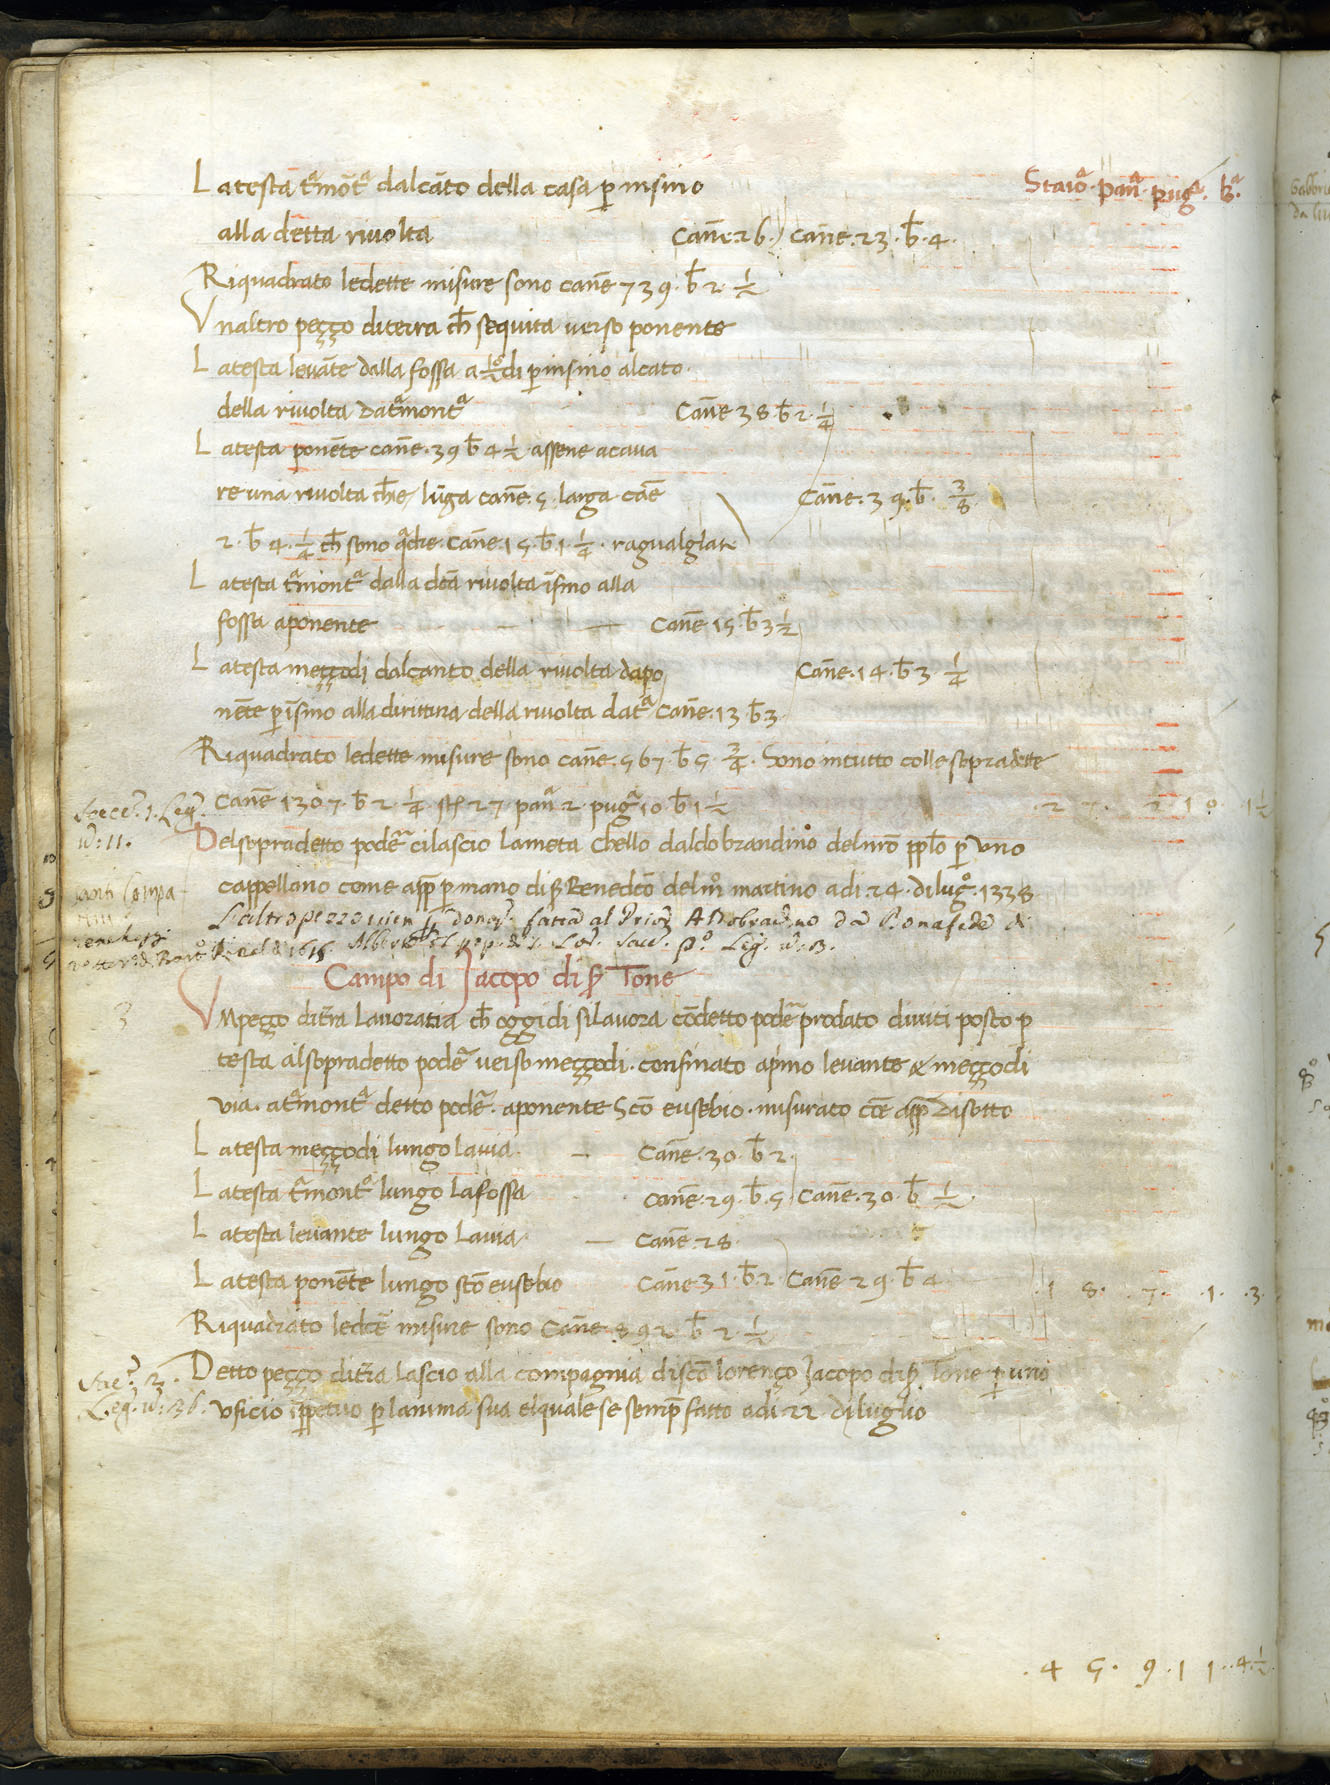 Staioa · pana · pugra · Ba.
L atesta tramōta dalcāto della casa p insino
alla detta rivolta Canē · 26 · Canē · 23 · b̄ · 4 ·
Riquadrato ledette misure sono canē 739 · b̄ 2 · 1/2
Vnaltro peçço diterra ch̄ sequita verso ponente
L atesta levāte dalla fossa a di p insino alcato ·
della rivolta Datramonta Canē 38 · b̄ 2 · 1/4
L atesta ponēte canē · 39 b̄ 4 1/2 · assene acava
re una rivolta ch̄ e lūga canē · 5 · larga canē Canē · 39 · b̄ · 3/8
2 · b̄ 4 · 1/4 ch̄ sono qadre · Canē · 15 · b̄ · 1 · 1/4 · ragualgiat
L atesta tramonta dalla dc̄a rivolta īsino alla
fossa aponente Canē 15 · b̄ 3 1/2
L atesta meççodi dalcanto della rivolta dapo Canē · 14 · b̄ 3 1/4
nēte p īsino alla dirittura della rivolta data Canē · 13 b̄ 3 ·
Riquadrato ledette misure sono canē · 567 · b̄ 5 · 3/4 · Sono intutto colle sopradette
Canē 1307 · b̄ 2 1/4 st 27 pana 2 · pugra 10 b̄ 1 1/2 · 2 7 · 2 1 0 · 1 1/2
Delsopradetto podere cilascio lameta Chello daldobrandino delnr̄o ppl̄o p uno
cappellano come app p mano di s Benedc̄o delmo martino adi 24 · dilugo · 1338
Laltro pezzo vien donaz. fatta al Prior Aldobrandino Da Bonafede di
Campo di Jacopo di s Tone
Vn peçço ditrā Lavoratia ch̄ oggi di silavora cōdetto podere prodato diviti posto p
testa alsopradetto podere verso meççodi · confinato aprimo levante & meççodi
via · atramonta detto podere · aponente Scō eusebio · misurato cōe app disotto
L atesta meççodi lungo lavia · Canē · 30 · b̄ 2 ·
L atesta tramonto lungo lafossa Canē · 29 · b̄ · 5 Canē · 30 · b̄ 1/2 ·
L atesta levante lungo Lavia · Canē · 28 ·
L atesta ponēte lungo scō eusebio Canē 31 · b̄ · 2 · Canē 29 · b̄ 4 · · 1 8 · · 7 · · 1 · · 3 ·
Riquadrato ledcē misure sono Canē · 892 · b̄ 2 1/2
Detto peçço ditrā lascio alla compagnia discō lorenço Jacopo di s Tone p uno
vficio īppetuo p lanima sua elquale se semp fatto adi 22 diluglio
· 4 5 · 9 · 1 1 · · 4 · 1/2